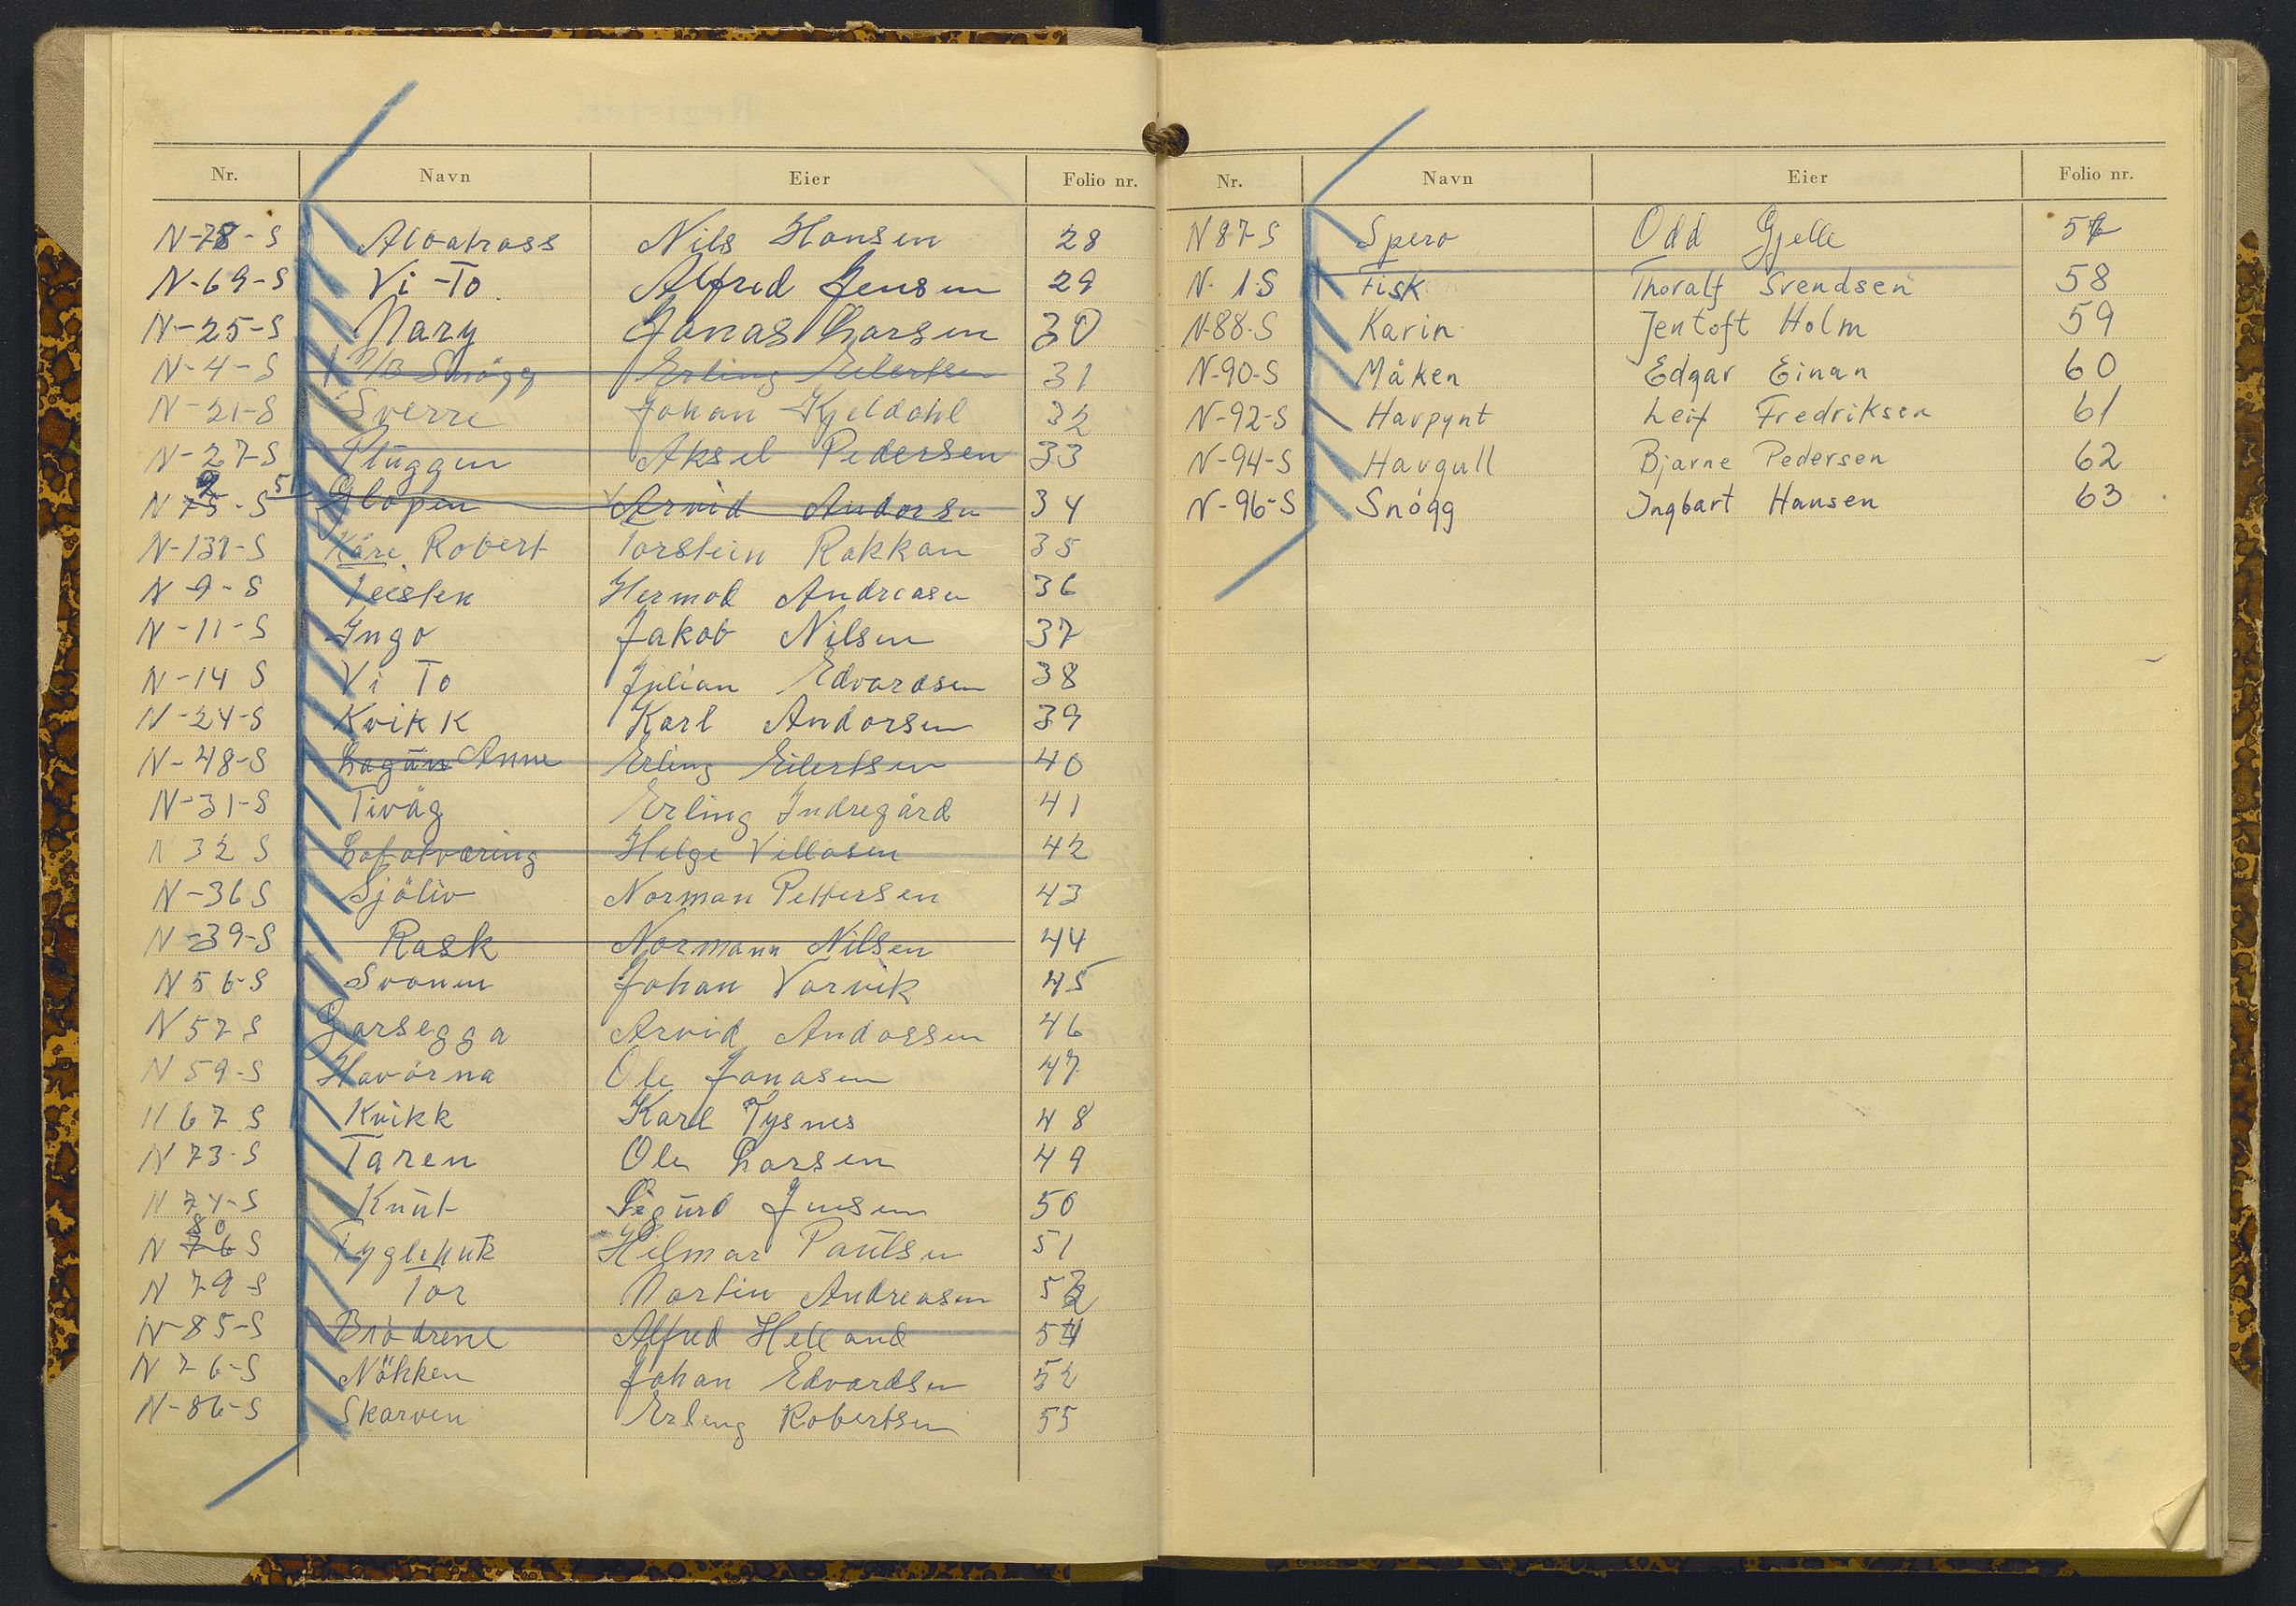 Nr. Navn Eier Folio nr.
N-78-S Albatross Nils Hansen 28
N-69-S Vi-To Alfred Jensen 29
N-25-S Mary Jonas Larsen 30
N-4-S M/B Snögg Erling Eilertsen 31
N-21-S Sverre Johan Kjeldahl 32
N-27-S Pluggen Aksel Pedersen 33
N 75-S Glopen Arvid Andorsen 34
N-131-S Kåre Robert Torstein Rokkan 35
N-9-S Teisten Hermod Andreasen 36
N-11-S Ingo Jakob Nilsen 37
N-14 S Vi To Julian Edvardsen 38
N-24-S Kvikk Karl Andorsen 39
N-48-S Lagun Anne Erling Eilertsen 40
N-31-S Tivåg Erling Indregård 41
N 32 S Lofotværing Helge Villasen 42
N-36 S Sjöliv Norman Pettersen 43
N-39-S Rask Normann Nilsen 44
N 56-S Svanen Johan Varvik 45
N 57 S Garsegga Arvid Andorsen 46
N 59-S Havörna Ole Jonasen 47
N 67 S Kvikk Karl Tysnes 48
N 73-S Taren Ole Larsen 49
N 74-S Knut Sigurd Jensen 50
80
N 76 S Tyglenuk Hilmar Paulsen 51
N 79-S Tor Martin Andreasen 53
N-85-S Brödrene Alfred Helland 54
N 76-S Nökken Johan Edvardsen 52
N-86-S Skarven Erling Robertsen 55
Nr. Navn Eier Folio nr.
N 87-S Spero Odd Gjelle 57
N-1-S Fisk Thoralf Svendsen 58
N-88-S Karin Jentoft Holm 59
N-90-S Måken Edgar Einan 60
N-92-S Havpynt Leif Fredriksen 61
N-94-S Havgull Bjarne Pedersen 62
N-96-S Snögg Ingbart Hansen 63